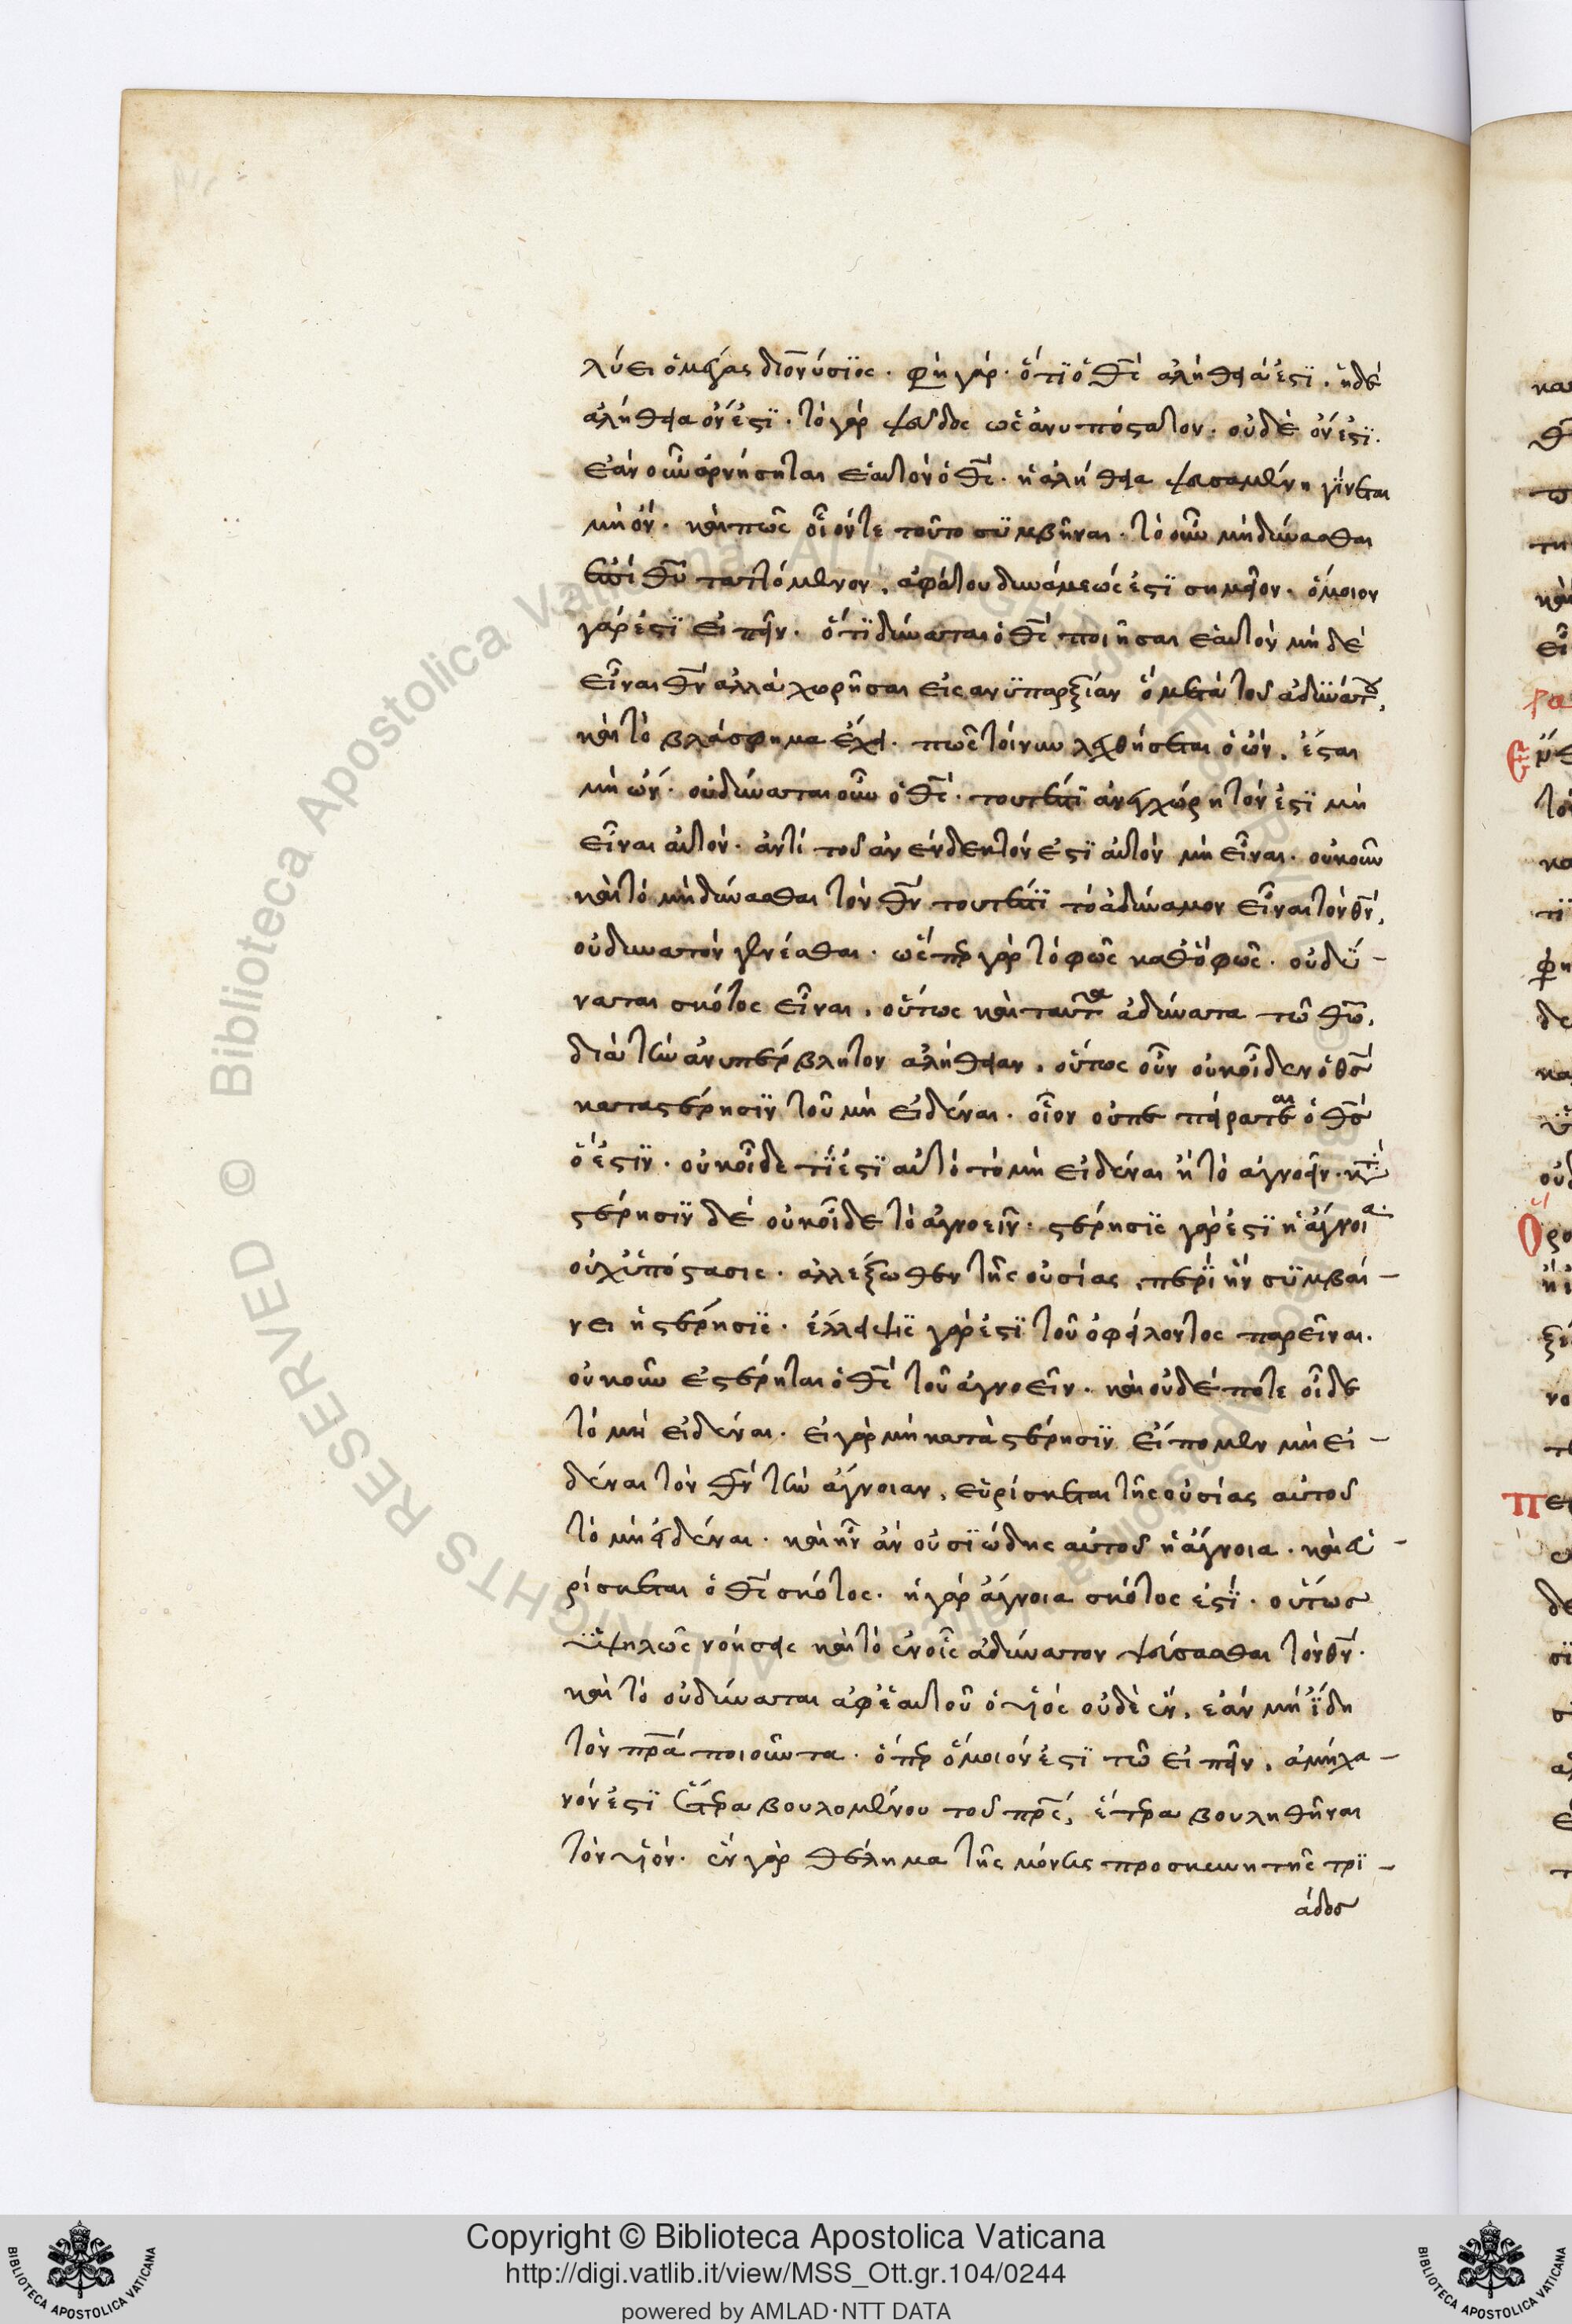 λύει ὁ μέγας διονύσϊος. φη γάρ. ὅτϊ ὁ θς ἀλήθειά ἐστϊ. ἡ δὲ
ἀλήθεια ὄν ἐστϊ. τὸ γὰρ ψεῦδος ὡς ἀνυπόστατον. οὐδὲ ὄν ἐστϊ.
ἐὰν οὖν ἀρνήσηται ἑαυτὸν ὁ θς. ἡ ἀλήθεια ψευσαμένη γίνεται
μὴ ὄν. καὶ πῶς οἷόν τε τοῦτο συμβῆναι. τὸ οὖν μὴ δύνασθαι
ἐπὶ θυ ταττόμενον, ἀφάτου δυνάμεώς ἐστϊ σημεῖον. ὅμοιον
γάρ ἐστϊ εἰπεῖν. ὅτϊ δύναται ὁ θς ποιῆσαι ἑαυτὸν μὴ δὲ
εἶναι θν ἀλλὰ χωρῆσαι εἰς ανϋπαρξίαν ὃ μετὰ τοῦ ἀδυνάτου,
καὶ τὸ βλάσφημα ἔχει. πῶς τοίνυν λεχθήσεται ὁ ὤν, ἔσται
μὴ ὤν. οὐ δύναται οὖν ὁ θς. τουτέστϊ ἀνεγχώρητόν ἐστϊ μὴ
εἶναι αὐτόν. ἀντὶ τοῦ ἀνένδεκτόν ἐστϊ αὐτὸν μὴ εἶναι. οὐκοῦν
καὶ τὸ μὴ δύνασθαι τὸν θν τουτέστϊ τὸ ἀδύναμον εἶναι τὸν θν,
οὐ δυνατὸν γενέσθαι. ὥσπερ γὰρ τὸ φῶς καθὸ φῶς. οὐ δύ-
ναται σκότος εἶναι, οὕτως καὶ ταῦτα ἀδύνατα τῶ θω,
διὰ τὴν ἀνυπέρβλητον ἀλήθειαν, οὕτως οὖν οὐκ οἶδεν ὁ θς
κατα στέρησϊν τοῦ μὴ εἰδέναι. οἷον οὐ πεπείραται ὁ θς
ὅ ἐστϊν. οὐκ οἶδε τΐ ἐστϊ αὐτὸ τὸ μὴ εἰδέναι ἢ τὸ ἀγνοεῖν. κατὰ
στέρησϊν δὲ οὐκ οἶδε τὸ ἀγνοεῖν. στέρησϊς γάρ ἐστϊ ἡ ἄγνοια.
οὐχ ὑπόστασις. ἀλλ' ἔξωθεν τῆς οὐσίας, περϊ ἣν σϋμβαί-
νει ἡ στέρησϊς. ἔλλειψϊς γάρ ἐστϊ τοῦ ὀφείλοντος παρεῖναι.
οὐκοῦν ἐστέρηται ὁ θς τοῦ ἀγνοεῖν. καὶ οὐδέποτε οἶδε
τὸ μὴ εἰδέναι. εἰ γὰρ μὴ κατὰ στέρησϊν εἴπομεν μὴ εἰ-
δέναι τὸν θν τὴν ἄγνοιαν, εὑρίσκεται τῆς οὐσίας αὐτοῦ
τὸ μὴ εἰδέναι. καὶ ἦν ἂν οὐσϊώδης αὐτοῦ ἡ ἄγνοια. καὶ εὑ-
ρίσκεται ὁ θς σκότος. ἡ γὰρ ἄγνοια σκότος ἐστϊ. οὕτως
ϋψηλῶς νοήσεις καὶ τὸ ἐν οἷς ἀδύνατον ψεύσασθαι τὸν θν.
καὶ τὸ οὐ δύναται ἀφ' ἑαυτοῦ ὁ υἱὸς οὐδὲ ἕν, ἐὰν μὴ ἴδη
τὸν πρα ποιοῦντα. ὅπερ ὅμοιόν ἐστϊ τῶ εἰπεῖν, ἀμήχα-
νόν ἐστϊ ἕτερα βουλομένου τοῦ πρς, ἕτερα βουληθῆναι
τὸν υἱόν. ἓν γὰρ θέλημα τῆς μόνης προσκυνητῆς τρϊ-
άδος